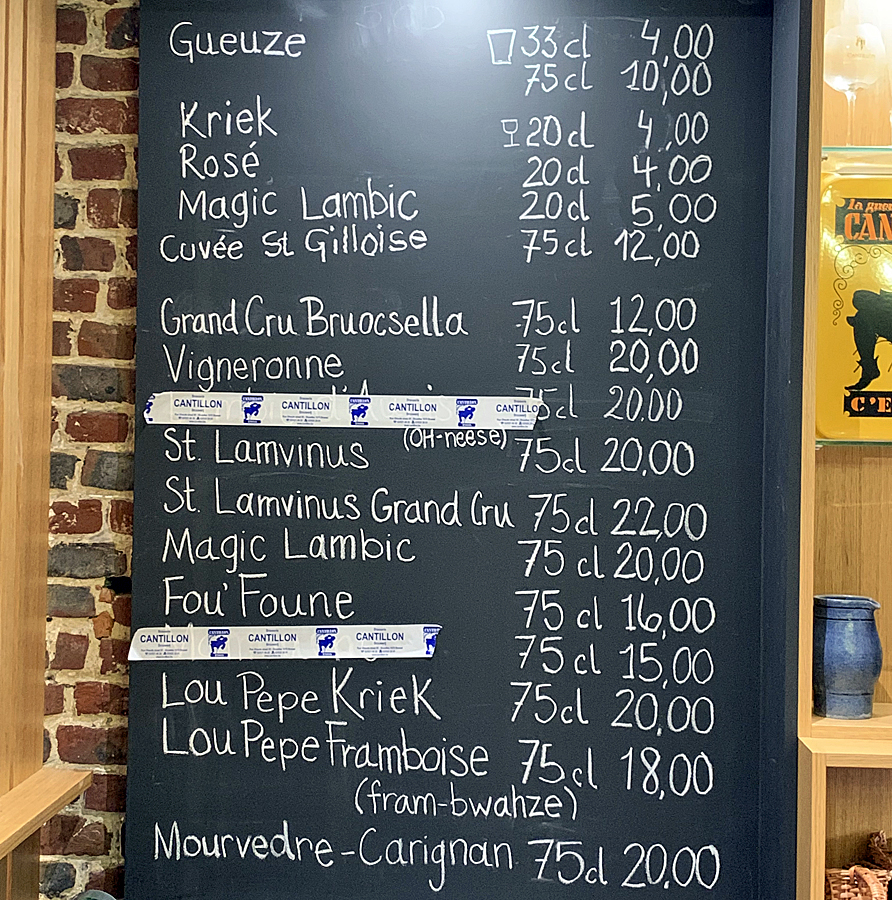 Gueuze 33cl 4,00
75cl 10,00
Kriek 20cl 4,00
Rosé 20cl 4,00
Magic Lambic 20cl 5,00
Cuvée St Gilloise 75cl 12,00
Grand Cru Bruocsella 75cl 12,00
Vigneronne 75cl 20,00
75cl 20,00
CANTILLON CANTILLON CANTILLON CANTILLO
(OH-neese)
St. Lamvinus 75cl 20,00
St. Lamvinus Grand Cru 75cl 22,00
Magic Lambic 75cl 20,00
Fou' Foune 75cl 16,00
CANTILLON CANTILLON CANTILLON
75cl 15,00
Lou Pepe Kriek 75cl 20,00
Lou Pepe Framboise 75cl 18,00
(fram-bwahze)
Mourvedre-Carignan 75cl 20,00
la gueu
CAN
C'E